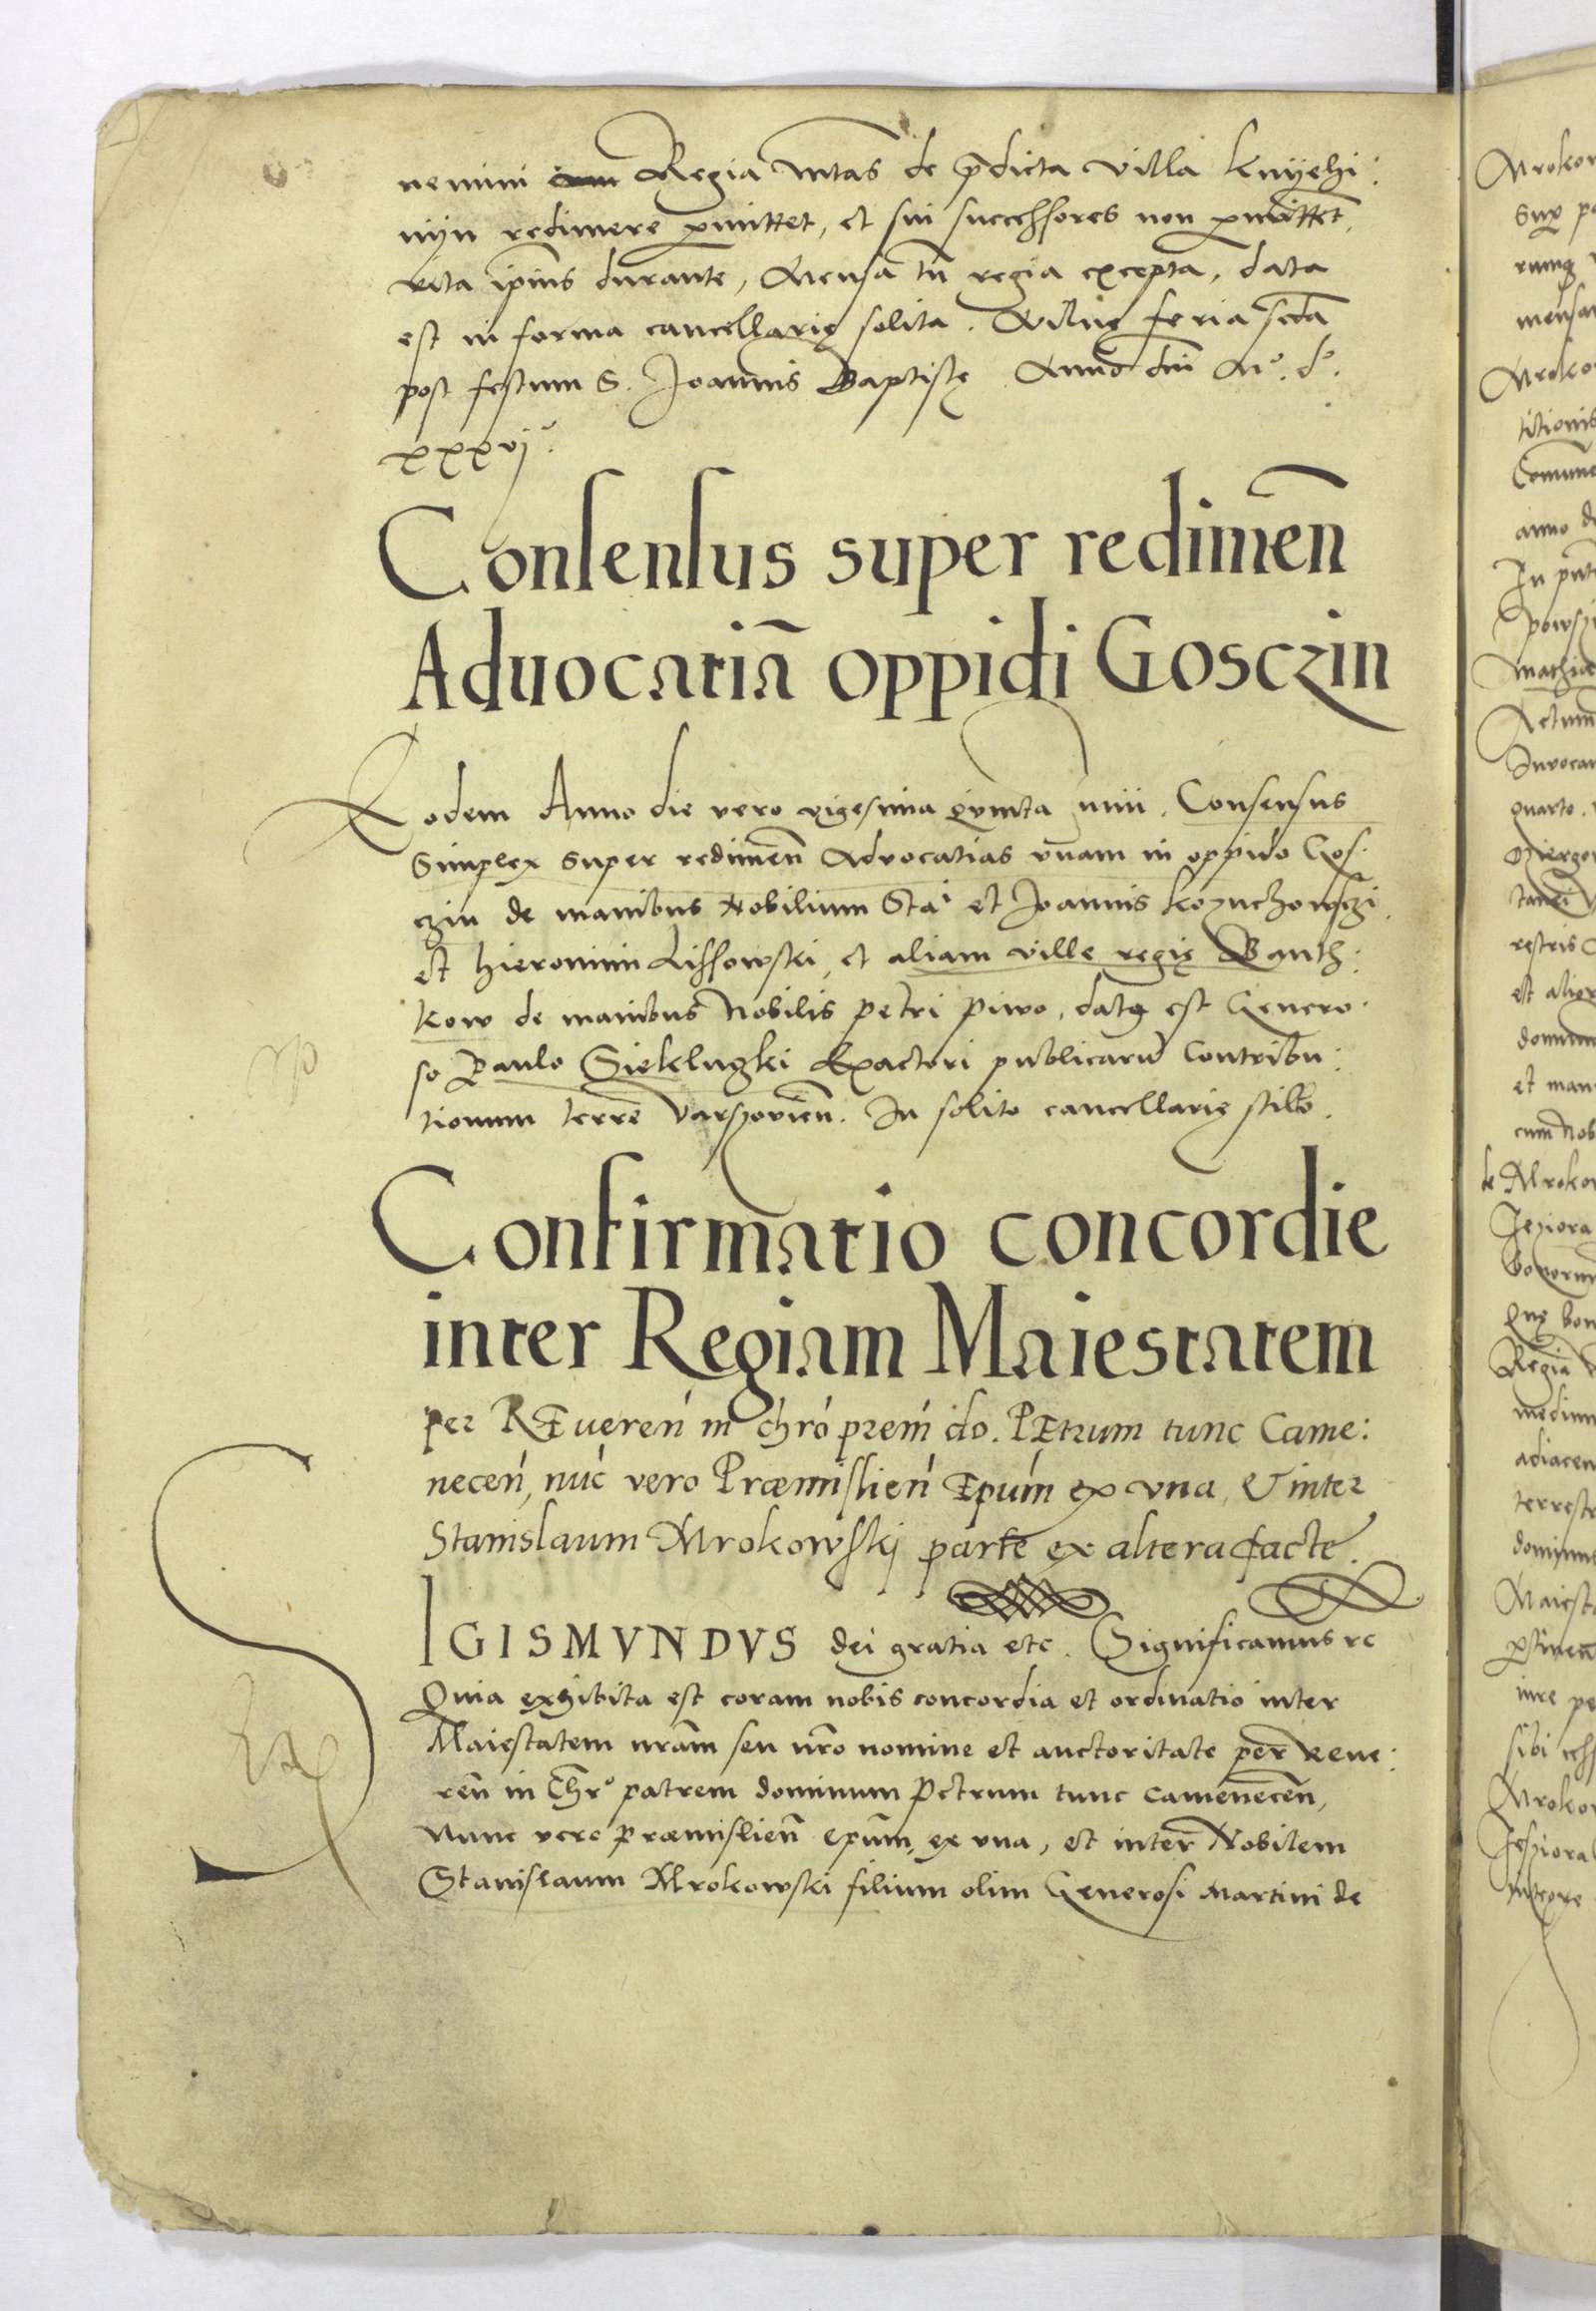 nemini Regia Mtas de pdicta villa Knÿehi:
nÿn redimere pmittet, et sui successores non pmittet,
vita ipius durante, Mensa tn regia excepta, data
est in forma cancellarię solita. Vilnę feria scda
post festum S. Joannis Baptistę Anno dni Mº. dº.
xxxvjº.
Consensus super redimen̄
Aduocatiā oppidi Gosczin
Eodem Anno die vero vigesima quinta Junii. Consensus
simplex super redimen̄ Advocatias vnam in oppido Gos:
czin de manibus Nobilium Stai et Joannis Kozuchowszki
et Hieronimi Lissowski, et aliam ville regię Banth:
kow de manibus Nobilis Petri Piwo, datq est Genero:
so Paulo Sieklugki Exactori publicaru Contribu:
tionum terre Varszovien̄. In solito cancellarię stilo.
Confirmatio concordie
inter Regiam Maiestatem
per REueren in chro prem do. PEtrum tunc Came:
necen, nuc vero Præmislien Epum ex vna, & inter
Stanislaum Mrokowskj parte ex altera facte.
SIGISMVNDVS dei gratia etc. Significamus rc
Quia exhibita est coram nobis concordia et ordinatio inter
Maiestatem nram seu nro nomine et auctoritate per Reue:
ren̄ in Chrº patrem dominum Petrum tunc Camenecen̄,
Nunc vero Præmislien̄ Epum, ex vna, et inter Nobilem
Stanislaum Mrokowski filium olim Generosi Martini de